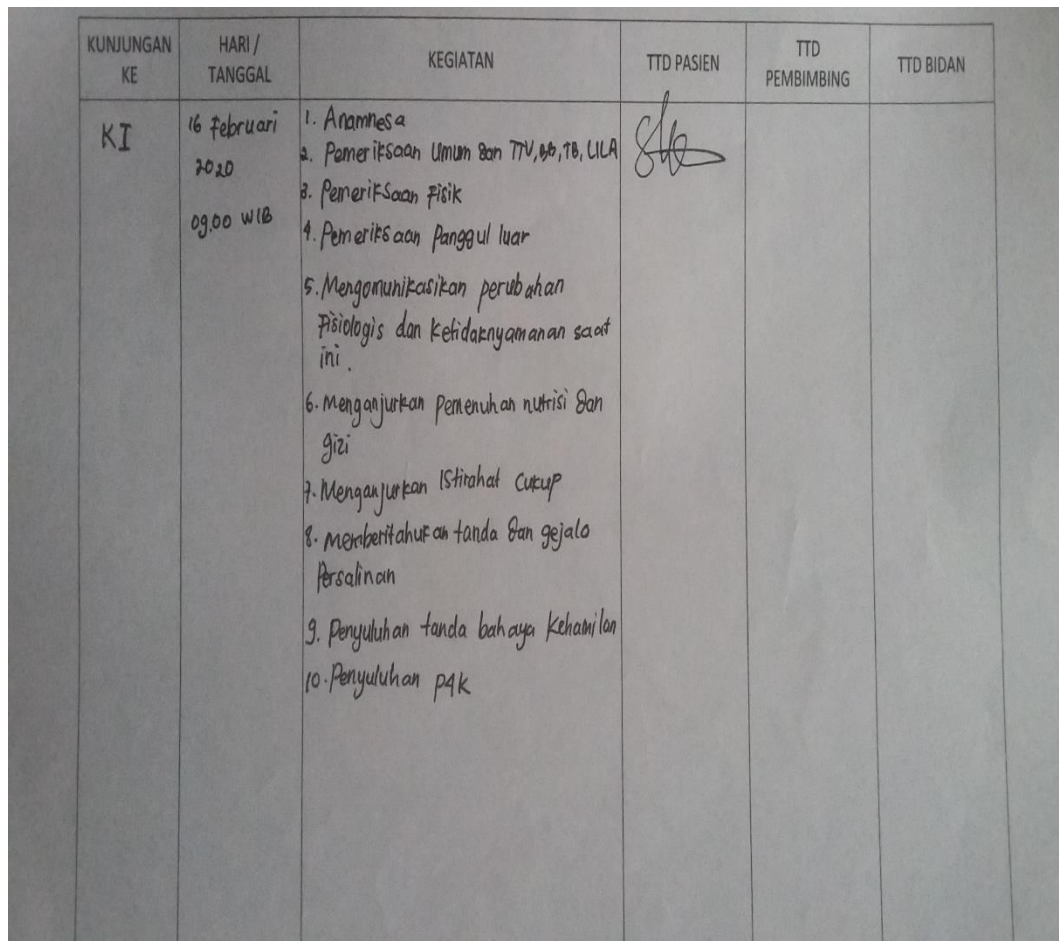 KUNJUNGAN
KE
HARI /
TANGGAL
KEGIATAN
TTD PASIEN
TTD
PEMBIMBING
TTD BIDAN
KI
16 Februari
2020
09.00 WIB
1. Anamnesa
2. Pemeriksaan Umum dan TTV, BB, TB, LILA
3. Pemeriksaan Fisik
4. Pemeriksaan Panggul luar
5. Mengomunikasikan perubahan
Fisiologis dan Ketidaknyamanan saat
ini.
6. Menganjurkan Pemenuhan nutrisi dan
gizi
7. Menganjurkan Istirahat Cukup
8. Memberitahukan tanda dan gejala
Persalinan
9. Penyuluhan tanda bahaya Kehamilan
10. Penyuluhan P4K